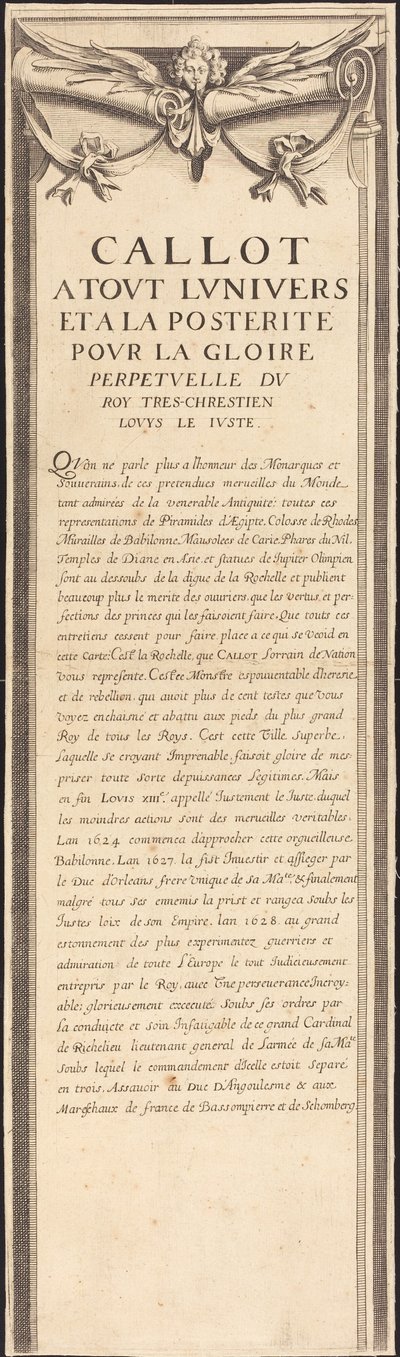 CALLOT
A TOVT LVNIVERS
ET A LA POSTERITE
POVR LA GLOIRE
PERPETVELLE DV
ROY TRES-CHRESTIEN
LOVYS LE IVSTE.
QVon ne parle plus a lhonneur des Monarques et
Souuerains, de ces pretendues merueilles du Monde
tant admirées de la venerable Antiquite: toutes ces
representations de Piramides d'Ægipte, Colosse de Rhodes
Murailles de Babilonne, Mausolees de Carie, Phares du Nil,
Temples de Diane en Asie, et statues de Iupiter Olimpien
sont au dessoubs de la digue de la Rochelle et publient
beaucoup plus le merite des ouuriers, que les vertus, et per-
fections des princes qui les faisoient faire, Que touts ces
entretiens cessent pour faire place a ce qui se veoid en
cette Carte: Cest la Rochelle, que CALLOT Lorrain de Nation
vous represente. Cest ce Monstre espouuentable d'heresie
et de rebellion, qui auoit plus de cent testes que vous
voyez enchaisné et abattu aux pieds du plus grand
Roy de tous les Roys. Cest cette Ville superbe,
laquelle se croyant Imprenable, faisoit gloire de mes-
priser toute sorte depuissances legitimes. Mais
en fin LOVIS XIIIe. appellé Iustement le Iuste, duquel
les moindres actions sont des merueilles veritables,
Lan 1624 commenca dapprocher cette orgueilleuse
Babilonne, Lan 1627 la fist Inuestir et assieger par
le Duc d'Orleans frere vnique de sa Mate. & finalement
malgré tous ses ennemis la prist et rangea soubs les
Iustes loix de son Empire, lan 1628. au grand
estonnement des plus experimentez guerriers et
admiration de toute L'Europe le tout Iudicieusement
entrepris par le Roy, auec vne perseuerance Incroy-
able; glorieusement excecuté soubs ses ordres par
la conduicte et soin Infatigable de ce grand Cardinal
de Richelieu lieutenant general de larmée de sa Mate
soubs lequel le commandement d'Icelle estoit separé
en trois, Assauoir au Duc D'Angoulesme & aux
Mareschaux de france de Bassompierre et de Schomberg.